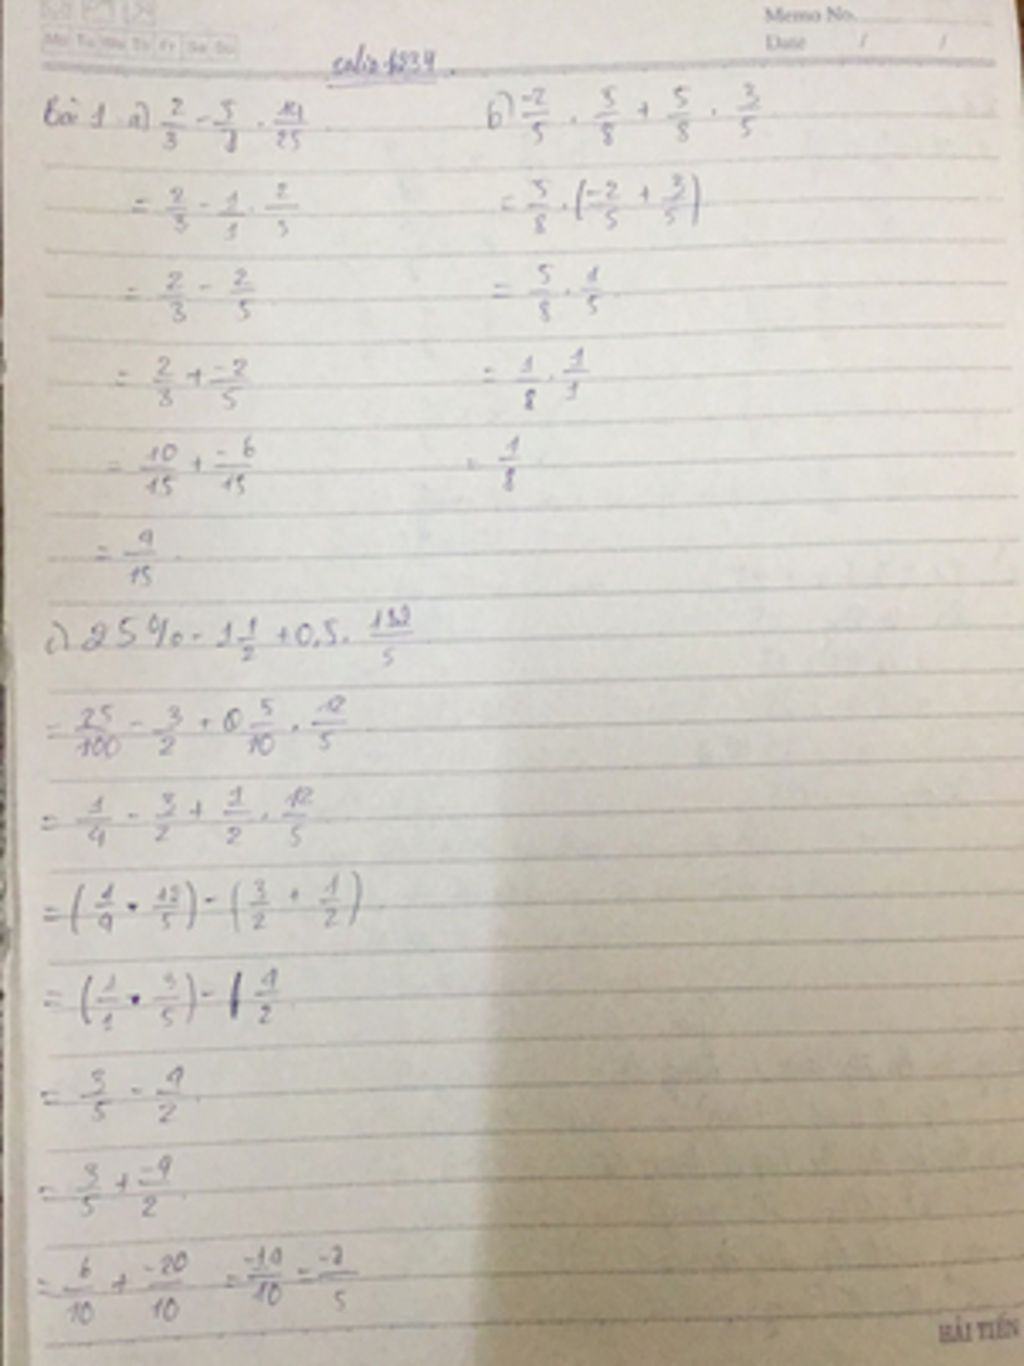 Memo No.
Mo Tu We Th Fr Sa Su
Date / /
Bài 1 a) 2/3 - 5/7 . 14/25
= 2/3 - 1/1 . 2/5
= 2/3 - 2/5
= 2/3 + -2/5
= 10/15 + -6/15
= 4/15
b) -2/5 . 5/8 + 5/8 . 3/5
= 5/8 . (-2/5 + 3/5)
= 5/8 . 1/5
= 1/8 . 1/1
= 1/8
c) 25% - 1 1/2 + 0,5 . 12/5
= 25/100 - 3/2 + 5/10 . 12/5
= 1/4 - 3/2 + 1/2 . 12/5
= (1/4 . 12/5) - (3/2 + 1/2)
= (1/1 . 3/5) - 4/2
= 3/5 - 4/2
= 3/5 + -4/2
= 6/10 + -20/10 = -14/10 = -7/5
HẢI TIẾN